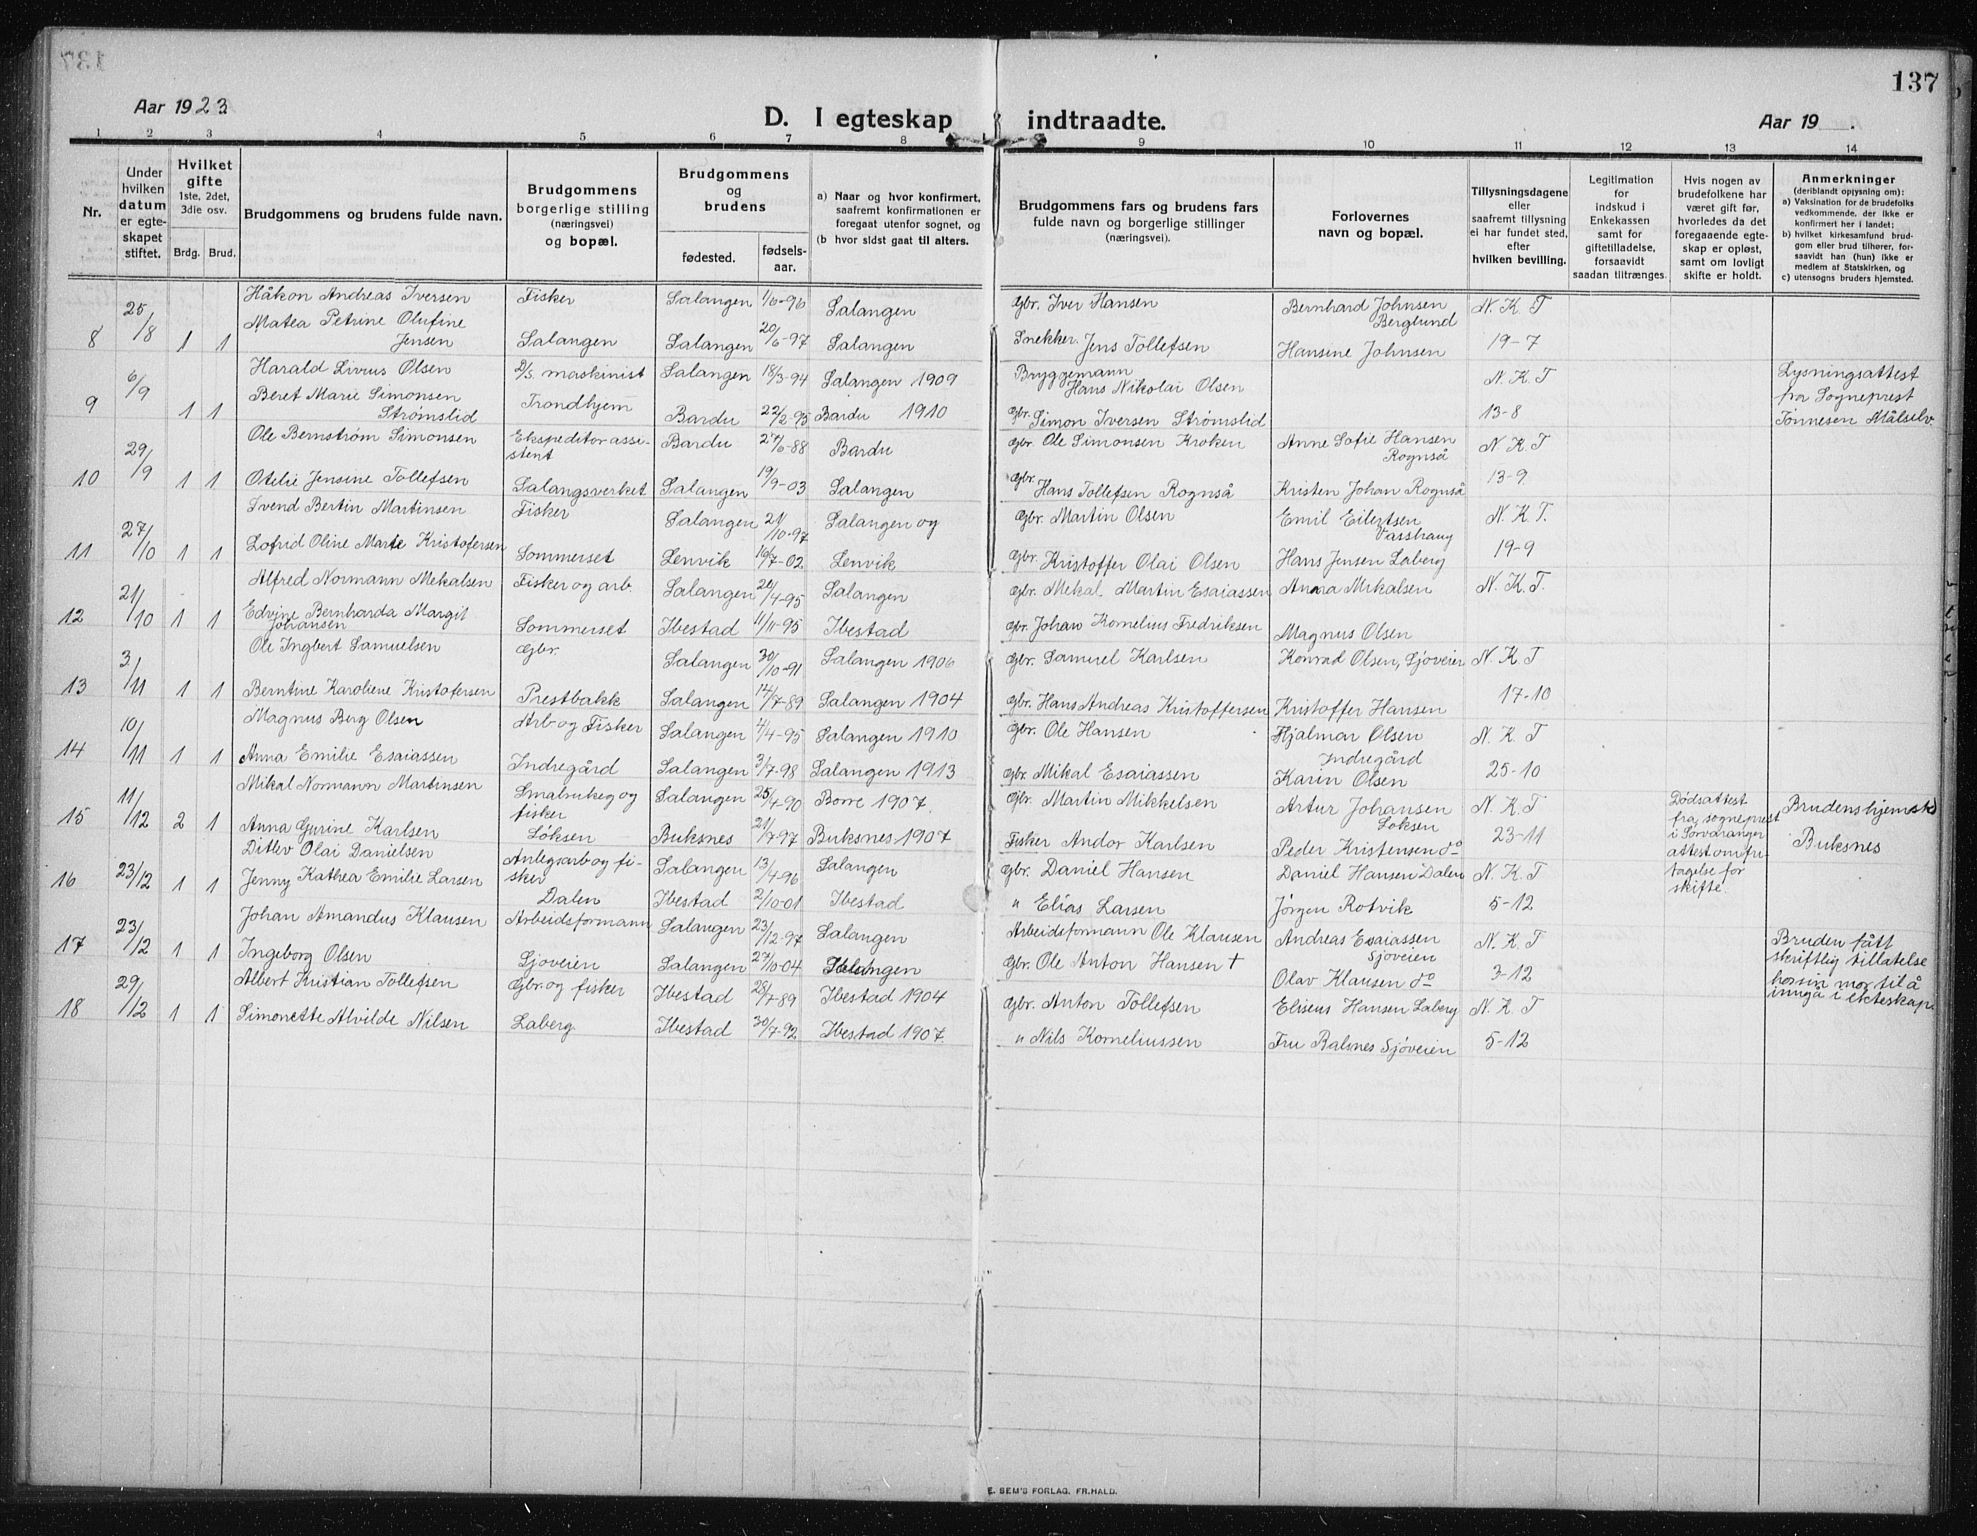 137
Aar 1923.
D. I egteskap indtraadte.
Aar 19 .
1 2 3 4 5 6 7 8 9 10 11 12 13 14
Nr.
Under hvilken datum er egte-skapet stiftet.
Hvilket gifte 1ste, 2det, 3die osv.
Brdg. Brud.
Brudgommens og brudens fulde navn.
Brudgommens borgerlige stilling (næringsvei) og bopæl.
Brudgommens og brudens
fødested. fødsels-aar.
a) Naar og hvor konfirmert, saafremt konfirmationen er foregaat utenfor sognet, og
(b hvor sidst gaat til alters.
Brudgommens fars og brudens fars fulde navn og borgerlige stillinger (næringsvei).
Forlovernes navn og bopæl.
Tillysningsdagene eller saafremt tillysning ei har fundet sted, efter hvilken bevilling.
Legitimation for indskud i Enkekassen samt for giftetilladelse, forsaavidt saadan tiltrænges.
Hvis nogen av brudefolkene har været gift før, hvorledes da det foregaaende egte-skap er opløst, samt om lovligt skifte er holdt.
Anmerkninger (deriblandt opjysning om):
a) Vaksination for de brudefolks vedkommende, der ikke er konfirmert her i landet;
b) hvilket kirkesamfund brud-gom eller brud tilhører, for-saavidt han (hun) ikke er medlem af Statskirken, og
c) utensogns bruders hjemsted.
8 25/8 1 1
Håkon Andreas Iversen Fisker Salangen 1/6-96 Salangen Gbr. Iver Hansen Bernhard Johnsen Berglund N. K. T
Matea Petrine Olufine Jensen Salangen Salangen 20/6-97 Salangen Snekker Jens Tollefsen Hansine Johnsen 19-7
9 6/9 1 1
Harald Livius Olsen D/S. maskinist Salangen 18/3-94 Salangen 1909 Bryggemann Hans Nikolai Olsen N. K. T Lysningsattest
Beret Marie Simonsen Strømslid Trondhjem Bardu 22/2-95 Bardu 1910 Gbr. Simon Iversen Strømslid 13-8 fra Sogneprest Tønnesen Målselv
10 29/9 1 1
Ole Bernstrøm Simonsen Ekspeditorassi-stent Bardu 27/6-88 Bardu Gbr Ole Simonsen Kroken Anne Sofie Hansen Rognså N. K. T
Otelie Jensine Tollefsen Salangsverket Salangen 19/9-03 Salangen Gbr. Hans Tollefsen Rognså Kristen Johan Rognså 13-9
11 27/10 1 1
Svend Bertin Martinsen Fisker Salangen 21/10-97 Salangen og Gbr. Martin Olsen Emil Eilertsen N. K. T.
Lofrid Oline Marte Kristofersen Sommerset Lenvik 16/7-02 Lenvik Gbr. Kristoffer Olai Olsen Hans Jensen Laberg 19-9
12 21/10 1 1
Alfred Normann Mekalsen Fisker og arb. Salangen 20/4-95 Salangen Gbr. Mekal Martin Esaiassen Anna Mikalsen N. K. T.
Edvine Bernharda Margit Johansen Sommerset Ibestad 11/11-95 Ibestad Gbr. Johan Kornelius Fredriksen Magnus Olsen
13 3/11 1 1
Ole Ingbert Samuelsen Gbr. Salangen 30/10-91 Salangen 1906 Gbr. Samuel Karlsen Konrad Olsen, Sjoveien N. K. T
Berntine Karoliene Kristofersen Prestbakk Salangen 14/7-89 Salangen 1904 Gbr. Hans Andreas Kristoffersen Kristoffer Hansen 17-10
14 10/11 1 1
Magnus Berg Olsen Arb og Fisker Salangen 4/4-95 Salangen 1910 Gbr. Ole Hansen Hjalmar Olsen Indregård N. K. T
Anna Emilie Esaiassen Indregård Salangen 3/7-98 Salangen 1913 Gbr. Mikal Esaiassen Karin Olsen 25-10
15 11/12 2 1
Mikal Normann Martinsen Småbruker og fisker Salangen 25/4-90 Borre 1907. Gbr. Martin Mikkelsen Artur Johansen Løksen N. K. T Dødsattest fra sogneprest i Sørvaranger attest om fri-tagelse for skifte. Brudens hjemsted
Anna Gurine Karlsen Løksen Buksnes 21/7-97 Buksnes 1907 Fisker Andor Karlsen Peder Kristensen do 23-11 Buksnes
16 23/12 1 1
Ditlev Olai Danielsen Anlegsarb og fi-sker Salangen 13/4-96 Salangen Gbr. Daniel Hansen Daniel Hansen Dalen N. K. T
Jenny Kathea Emilie Larsen Dalen Ibestad 2/10-01 Ibestad " Elias Larsen Jørgen Rotvik 5-12
17 23/12 1 1
Johan Amandus Klausen Arbeidsformann Salangen 23/12-97 Salangen Arbeidsformann Ole Klausen Andreas Esaiassen Sjoveien N. K. T Bruden fått
Ingeborg Olsen Sjoveien Salangen 27/10-04 Salangen Gbr. Ole Anton Hansen † Olav Klausen do 3-12 skriftlig tillatelse hos sin mor til å inngå i ekteskap.
18 29/12 1 1
Albert Kristian Tollefsen Gbr. og fisker Ibestad 28/7-89 Ibestad 1904 Gbr. Anton Tollefsen Eliseus Hansen Laberg N. K. T
Simonette Alvilde Nilsen Laberg Ibestad 30/7-92 Ibestad 1907. " Nils Korneliussen Fru Balsnes Sjøveien 5-12
E. SEM'S FORLAG, FR.HALD.